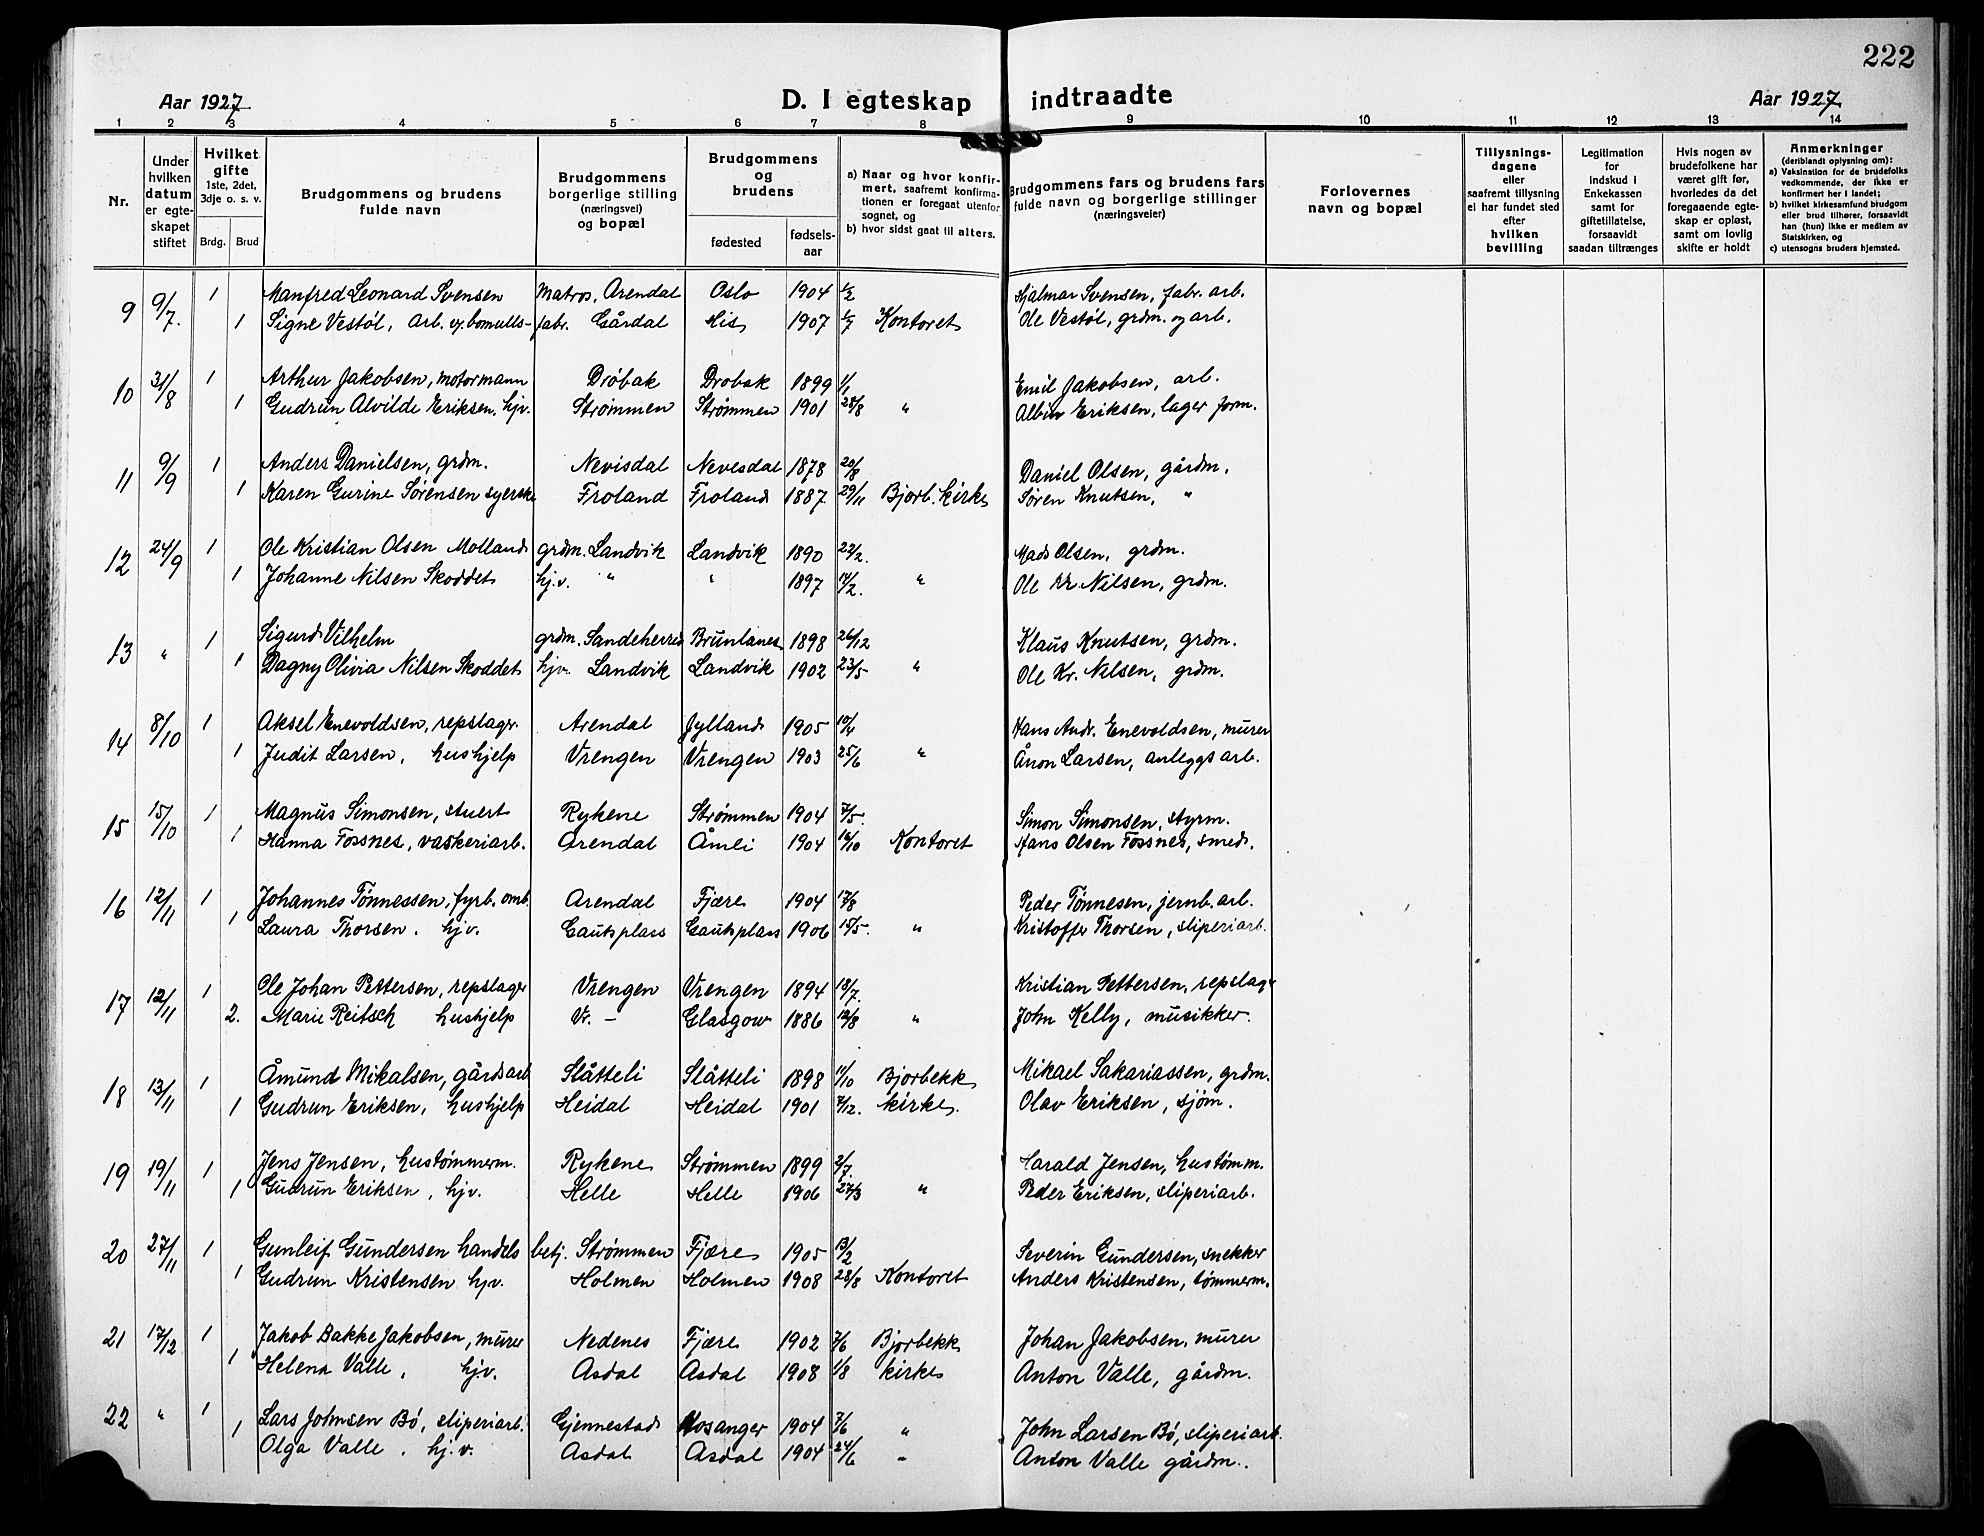 222
Aar 1927 D. I egteskap indtraadte Aar 1927
1 2 3 4 5 6 7 8 9 10 11 12 13 14
Nr.
Under hvilken datum er egteskapet stiftet
Hvilket gifte 1ste, 2det, 3dje o. s. v.
Brdg. Brud
Brudgommens og brudens fulde navn
Brudgommens borgerlige stilling (næringsvei) og bopæl
Brudgommens og brudens
fødested fødselsaar
a) Naar og hvor konfirmert, saafremt konfirmationen er foregaat utenfor sognet, og
b) hvor sidst gaat til alters.
Brudgommens fars og brudens fars fulde navn og borgerlige stillinger (næringsveier)
Forlovernes navn og bopæl
Tillysningsdagene eller saafremt tillysning ei har fundet sted efter hvilken bevilling
Legitimation for indskud i Enkekassen samt for giftetillatelse, forsaavidt saadan tiltrænges
Hvis nogen av brudefolkene har været gift før, hvorledes da det foregaaende egteskap er opløst, samt om lovlig skifte er holdt
Anmerkninger (deriblandt oplysning om):
a) Vaksination for de brudefolks vedkommende, der ikke er konfirmert her i landet;
b) hvilket kirkesamfund brudgom eller brud tilhører, forsaavidt han (hun) ikke er medlem av Statskirken, og
c) utensogns bruders hjemsted.
9 9/7. 1 Manfred Leonard Svensen Matros, Arendal Oslo 1904 1/2 Hjalmar Svensen, fabr. arb.
1 Signe Vestøl, Arb. v. bomulls-fabr. Gårdal His 1907 1/7 Kontoret Ole Vestøl, grdm. og arb.
10 31/8 1 Arthur Jakobsen, motormann Drøbak Drobak 1899 1/1 Emil Jakobsen, arb.
1 Gudrun Alvilde Eriksen, hjv. Strømmen Strømmen 1901 28/8 " Albin Eriksen, lager form.
11 9/9 1 Anders Danielsen, grdm. Nevisdal Nevesdal 1878 20/8 Daniel Olsen, gårdm.
1 Karen Gurine Sørensen syerske Froland Froland 1887 29/11 Bjorb. kirke Søren Knutsen, "
12 24/9 1 Ole Kristian Olsen Molland grdm. Landvik Landvik 1890 22/2. Mads Olsen, grdm.
1 Johanne Nilsen Skoddet hj.v. " " 1897 14/2. " Ole Kr. Nilsen, grdm.
13 " 1 Sigurd Vilhelm grdm. Sandeherred Brunlanes 1898 26/12 Klaus Knutsen, grdm.
1 Dagny Olivia Nilsen Skoddet hjv. Landvik Landvik 1902 23/5 " Ole Kr. Nilsen, grdm.
14 8/10 1 Aksel Enevoldsen, repslager Arendal Jylland 1905 10/4 Hans Andr. Enevoldsen, murer
1 Judit Larsen, hushjelp Vrengen Vrengen 1903 25/6 " Ånon Larsen, anleggsarb.
15 15/10 1 Magnus Simonsen, stuert Rykene Strømmen 1904 7/5. Simon Simonsen, styrm.
1 Hanna Fossnes, vaskeriarb. Arendal Åmli 1904 16/10 Kontoret Hans Olsen Fossnes, smed.
16 12/11 1 Johannes Tønnessen, fyrb. omb. Arendal Fjære 1904 17/8 Peder Tønnesen, jernb. arb.
1 Laura Thorsen. hjv. Gautsplass Gautsplass 1906 15/5. " Kristoffer Thorsen, sliperiarb.
17 12/11 1 Ole Johan Pettersen, repslager Vrengen Vrengen 1894 18/7. Kristian Pettersen, repslager
2. Marie Reitsch hushjelp Vr. – Glasgow 1886 12/8 " John Kelly, musikker.
18 13/11 1 Åmund Mikalsen, gårdsarb Slåtteli Slåtteli 1898 11/10 Bjorbekk Mikael Sakariassen, grdm.
1 Gudrun Eriksen, hushjelp Heidal Heidal 1901 7/12. kirke. Olav Eriksen, sjøm.
19 19/11 1 Jens Jensen, hustømmerm. Rykene Strømmen 1899 2/7. Harald Jensen, hustømm.
1 Gudrun Eriksen, hjv. Helle Helle 1906 27/3 " Peder Eriksen, sliperiarb.
20 27/11 1 Gunleif Gundersen handels betj. Strømmen Fjære 1905 13/2 Severin Gundersen, snekker
1 Gudrun Kristensen hjv. Holmen Holmen 1908 28/8 Kontoret Anders Kristensen, tømmerm.
21 17/12 1 Jakob Bakke Jakobsen, murer Nedenes Fjære 1902 7/6 Bjorbekk Johan Jakobsen, murer
1 Helena Valle, hjv. Asdal Asdal 1908 1/8 kirke Anton Valle, gårdm.
22 " 1 Lars Johnsen Bø, sliperiarb. Gjennestad Hosanger 1904 7/6 " John Larsen Bø, sliperiarb.
1 Olga Valle, hj.v. Asdal Asdal 1904 24/6 " Anton Valle gårdm.